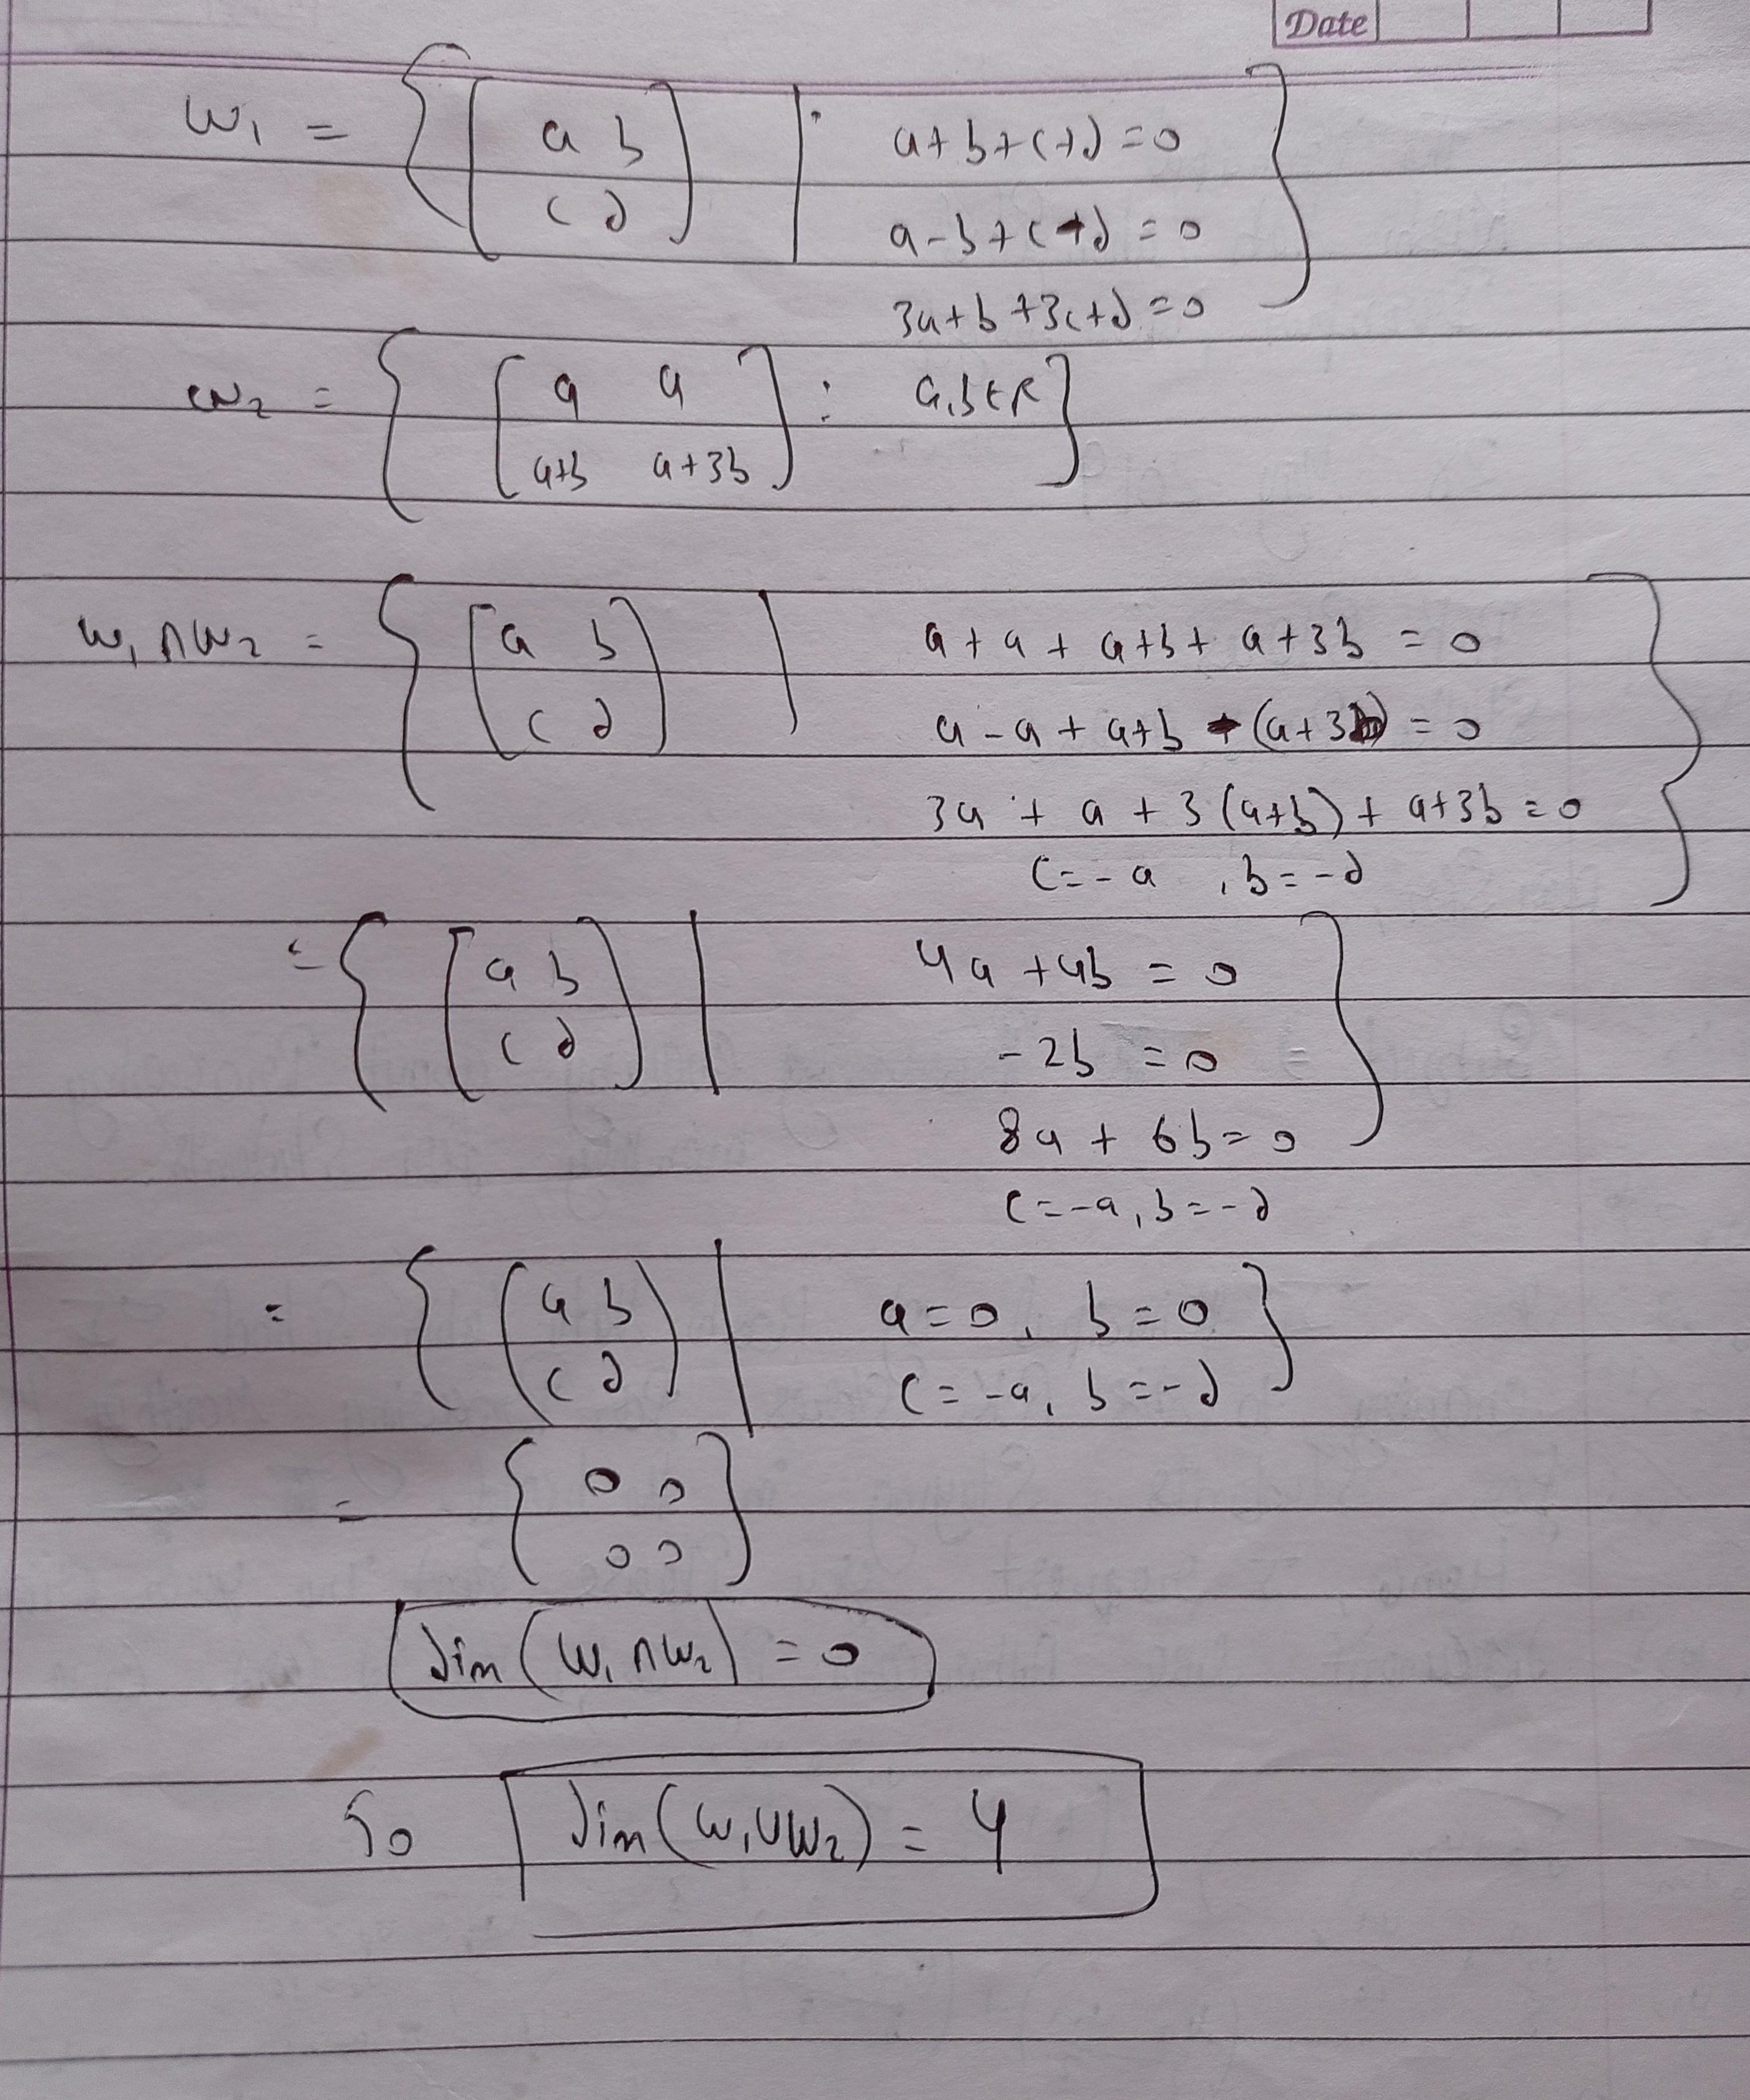 Date
W₁ = { [ a b | a+b+c+d = 0
c d ] a-b+c-d = 0
3a+b+3c+d = 0 }
W₂ = { [ a a
a+b a+3b ] : a,b∈R }
W₁∩W₂ = { [ a b | a + a + a+b + a+3b = 0
c d ] a - a + a+b - (a+3b) = 0
3a + a + 3(a+b) + a+3b = 0
c=-a , b=-d }
= { [ a b | 4a + 4b = 0
c d ] -2b = 0
8a + 6b = 0 }
c=-a, b=-d
= { ( a b | a=0, b=0
c d ) c=-a, b=-d }
= { 0 0
0 0 }
dim(W₁∩W₂) = 0
So dim(W₁∪W₂) = 4